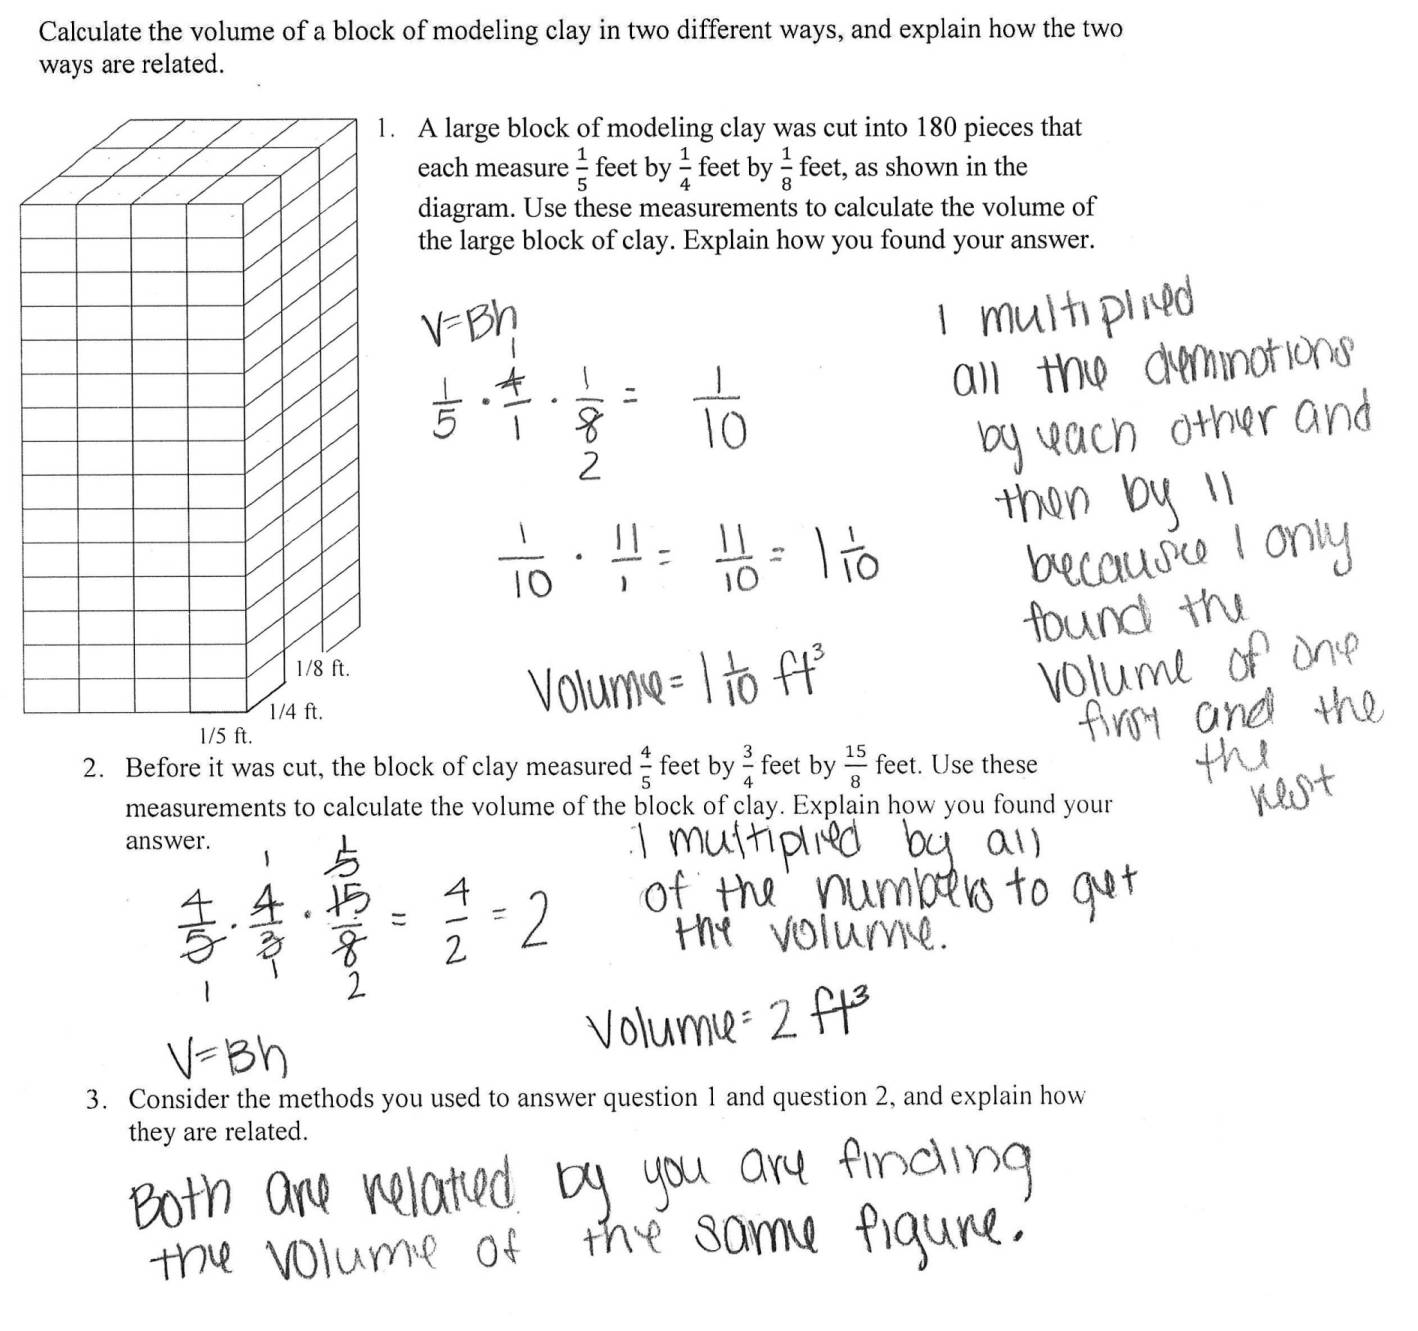 Calculate the volume of a block of modeling clay in two different ways, and explain how the two
ways are related.
1. A large block of modeling clay was cut into 180 pieces that
each measure 1/5 feet by 1/4 feet by 1/8 feet, as shown in the
diagram. Use these measurements to calculate the volume of
the large block of clay. Explain how you found your answer.
V=Bh
1/5 · 4/1 · 1/8 = 1/10
1
2
1/10 · 11/1 = 11/10 = 1 1/10
Volume = 1 1/10 ft³
I multiplied
all the deminotions
by each other and
then by 11
because I only
found the
volume of one
first and the
the
rest
1/8 ft.
1/4 ft.
1/5 ft.
2. Before it was cut, the block of clay measured 4/5 feet by 3/4 feet by 15/8 feet. Use these
measurements to calculate the volume of the block of clay. Explain how you found your
answer.
1 1
5
4/5 · 4/3 · 15/8 = 4/2 = 2
1 1 2
I multiplied by all
of the numbers to get
the volume.
Volume = 2 ft³
V=Bh
3. Consider the methods you used to answer question 1 and question 2, and explain how
they are related.
Both are related by you are finding
the volume of the same figure.